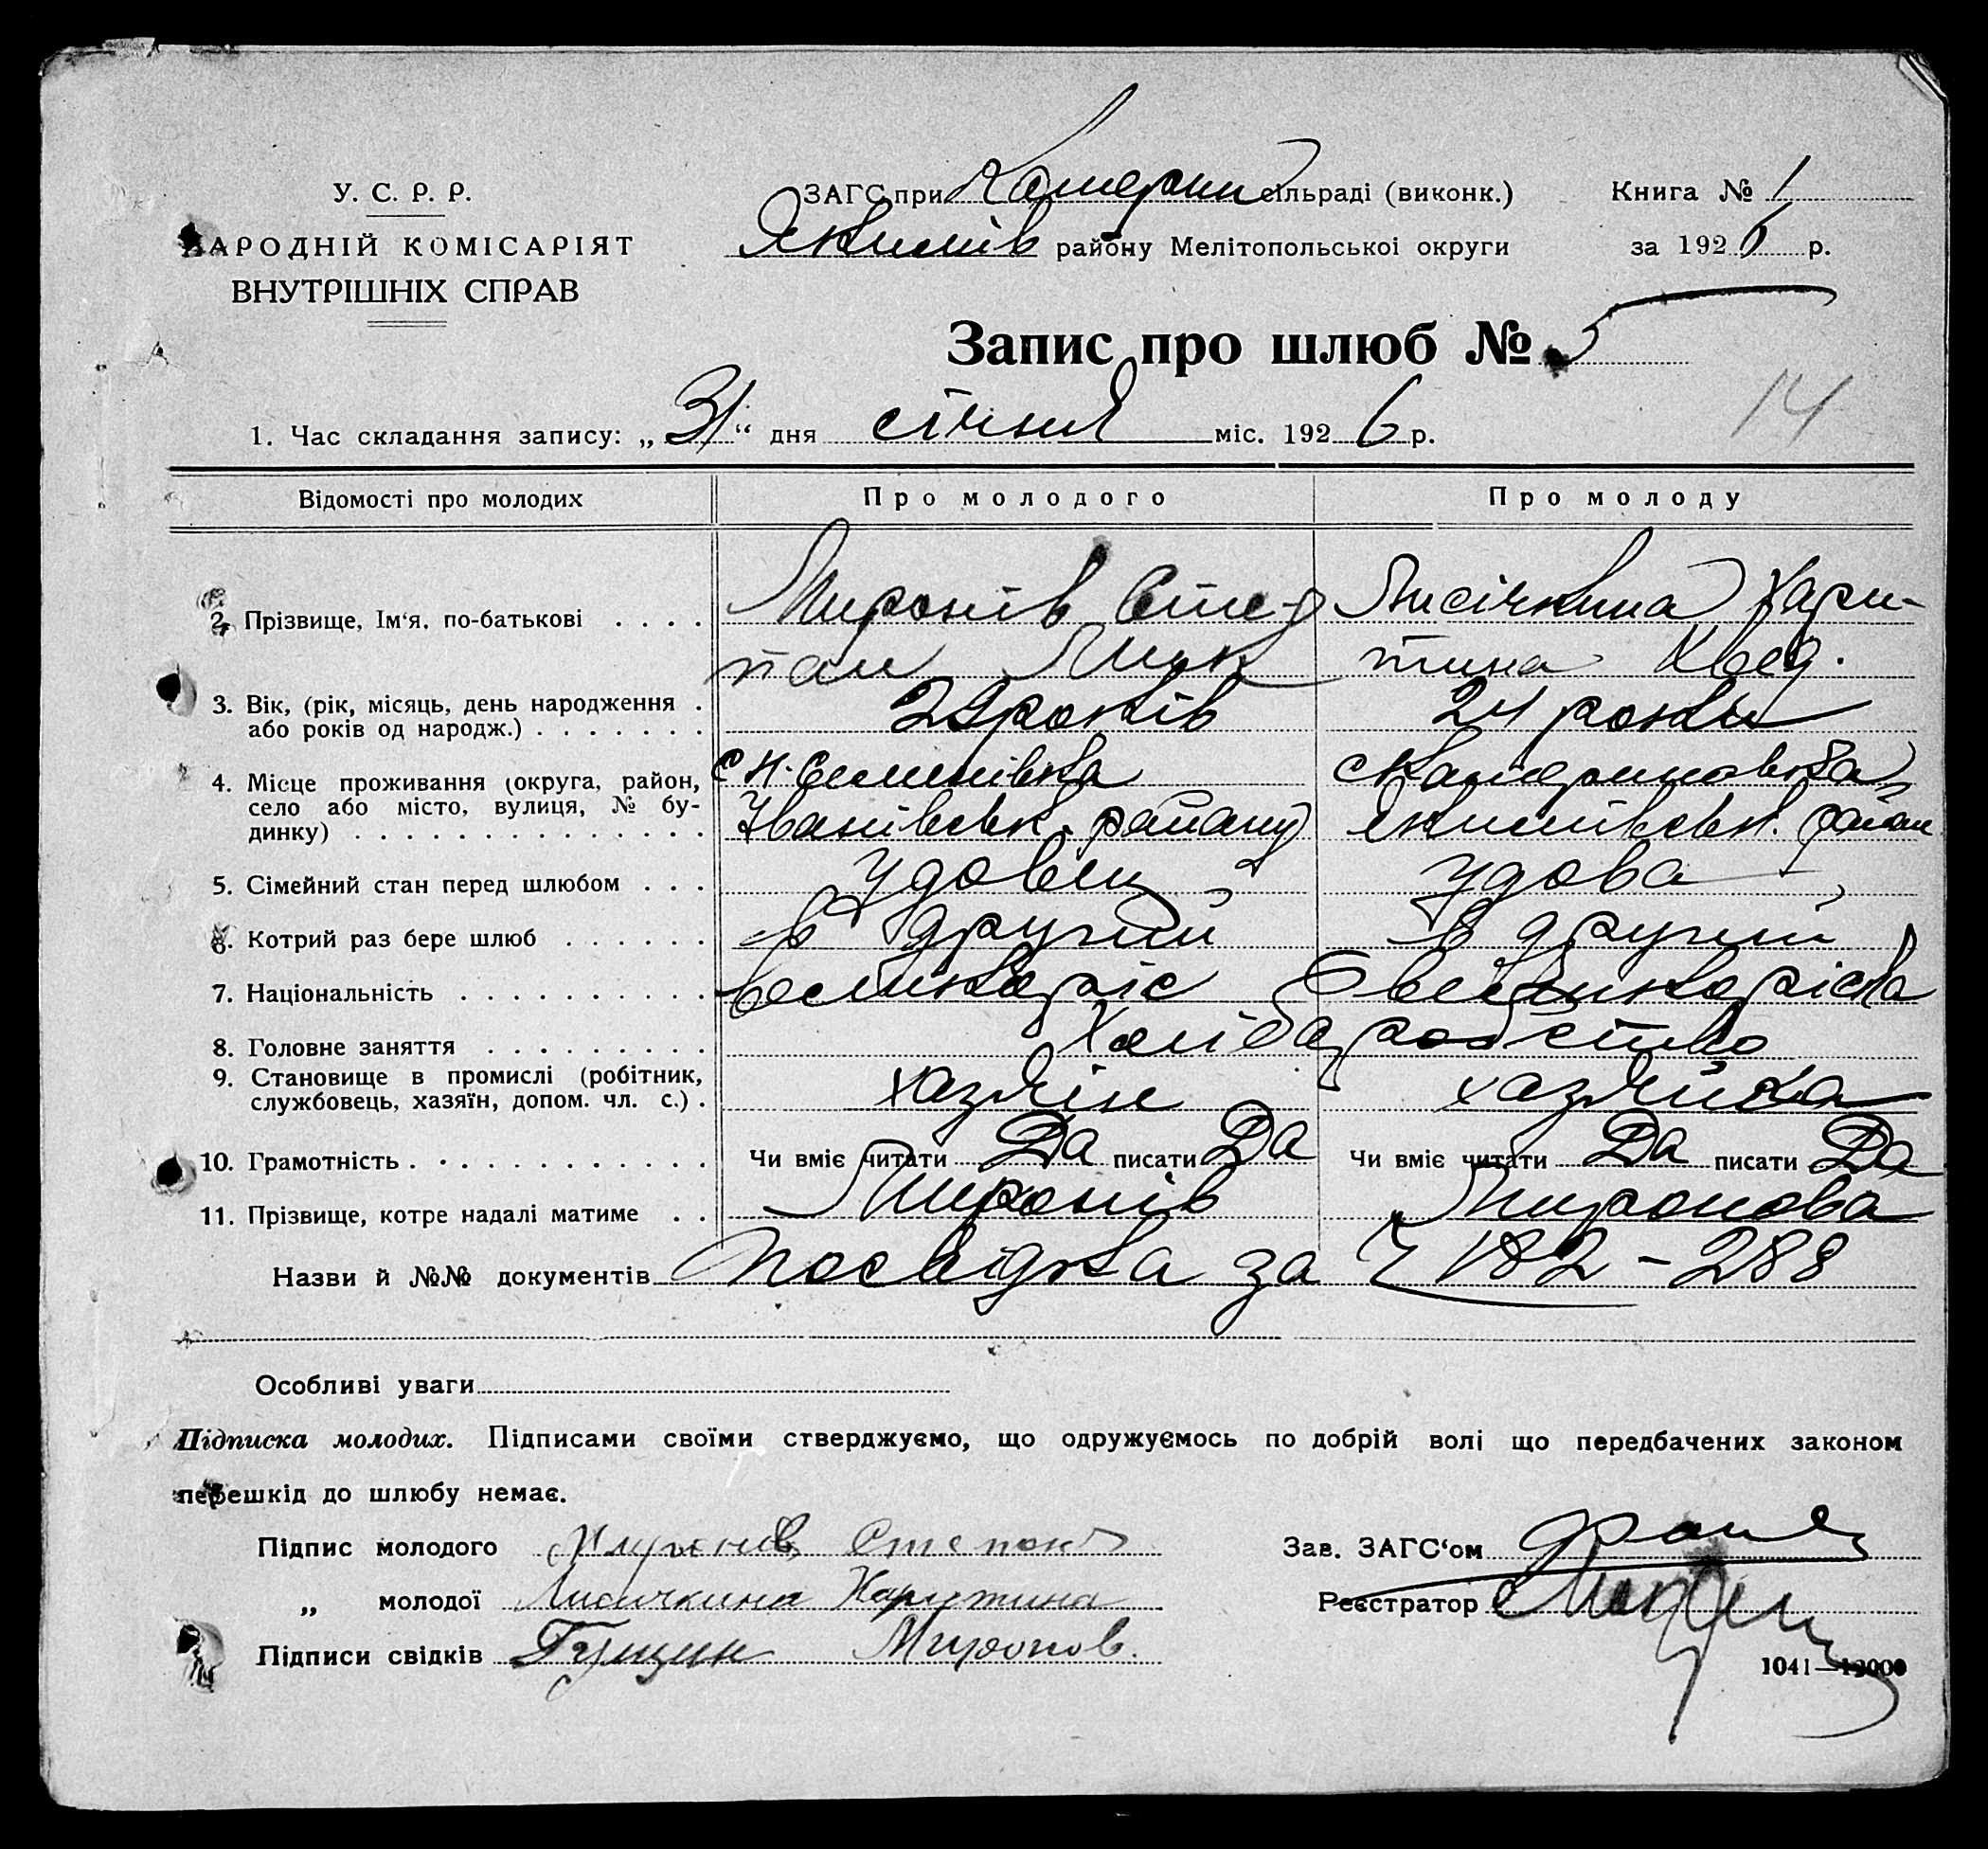 У. С. Р. Р.
НАРОДНІЙ КОМІСАРІЯТ
ВНУТРІШНІХ СПРАВ
ЗАГС при Катерин сільраді (виконк.)
Якимів району Мелітопольської округи
Книга № 1
за 1926 р.
Запис про шлюб № 5
14
1. Час складання запису: „31“ дня січня міс. 1926 р.
Відомості про молодих Про молодого Про молоду
2. Прізвище, Ім'я, по-батькові . . . . Миронів Сте- Лисічкина Хари-
пан Мик тина Квед.
3. Вік, (рік, місяць, день народження . або років од народж.) . . . . . . . 29 років 24 роки
4. Місце проживання (округа, район, с Н. Семенівка с Катериновка
село або місто, вулиця, № бу- Іванівськ. району Якимівськ. район
динку) . . . . . . . . . . . . . .
5. Сімейний стан перед шлюбом . . . Удовець удова
6. Котрий раз бере шлюб . . . . . . в другий в другий
7. Національність . . . . . . . . . . великоріс великоріска
8. Головне заняття . . . . . . . . . Хліборобство
9. Становище в промислі (робітник,
службовець, хазяїн, допом. чл. с.) . хазяін хазяйка
10. Грамотність . . . . . . . . . . . . Чи вміє читати Да писати Да Чи вміє читати Да писати Да
11. Прізвище, котре надалі матиме . . Миронів Миронова
Назви й №№ документів Посвідка за Ч 182 - 288
Особливі уваги
Підписка молодих. Підписами своїми стверджуємо, що одружуємось по добрій волі що передбачених законом
перешкід до шлюбу немає.
Підпис молодого Миронів Степон
„ молодої Лисичкина Харитина
Підписи свідків Гущин Миронов.
Зав. ЗАГС'ом
Реєстратор
1041—12000